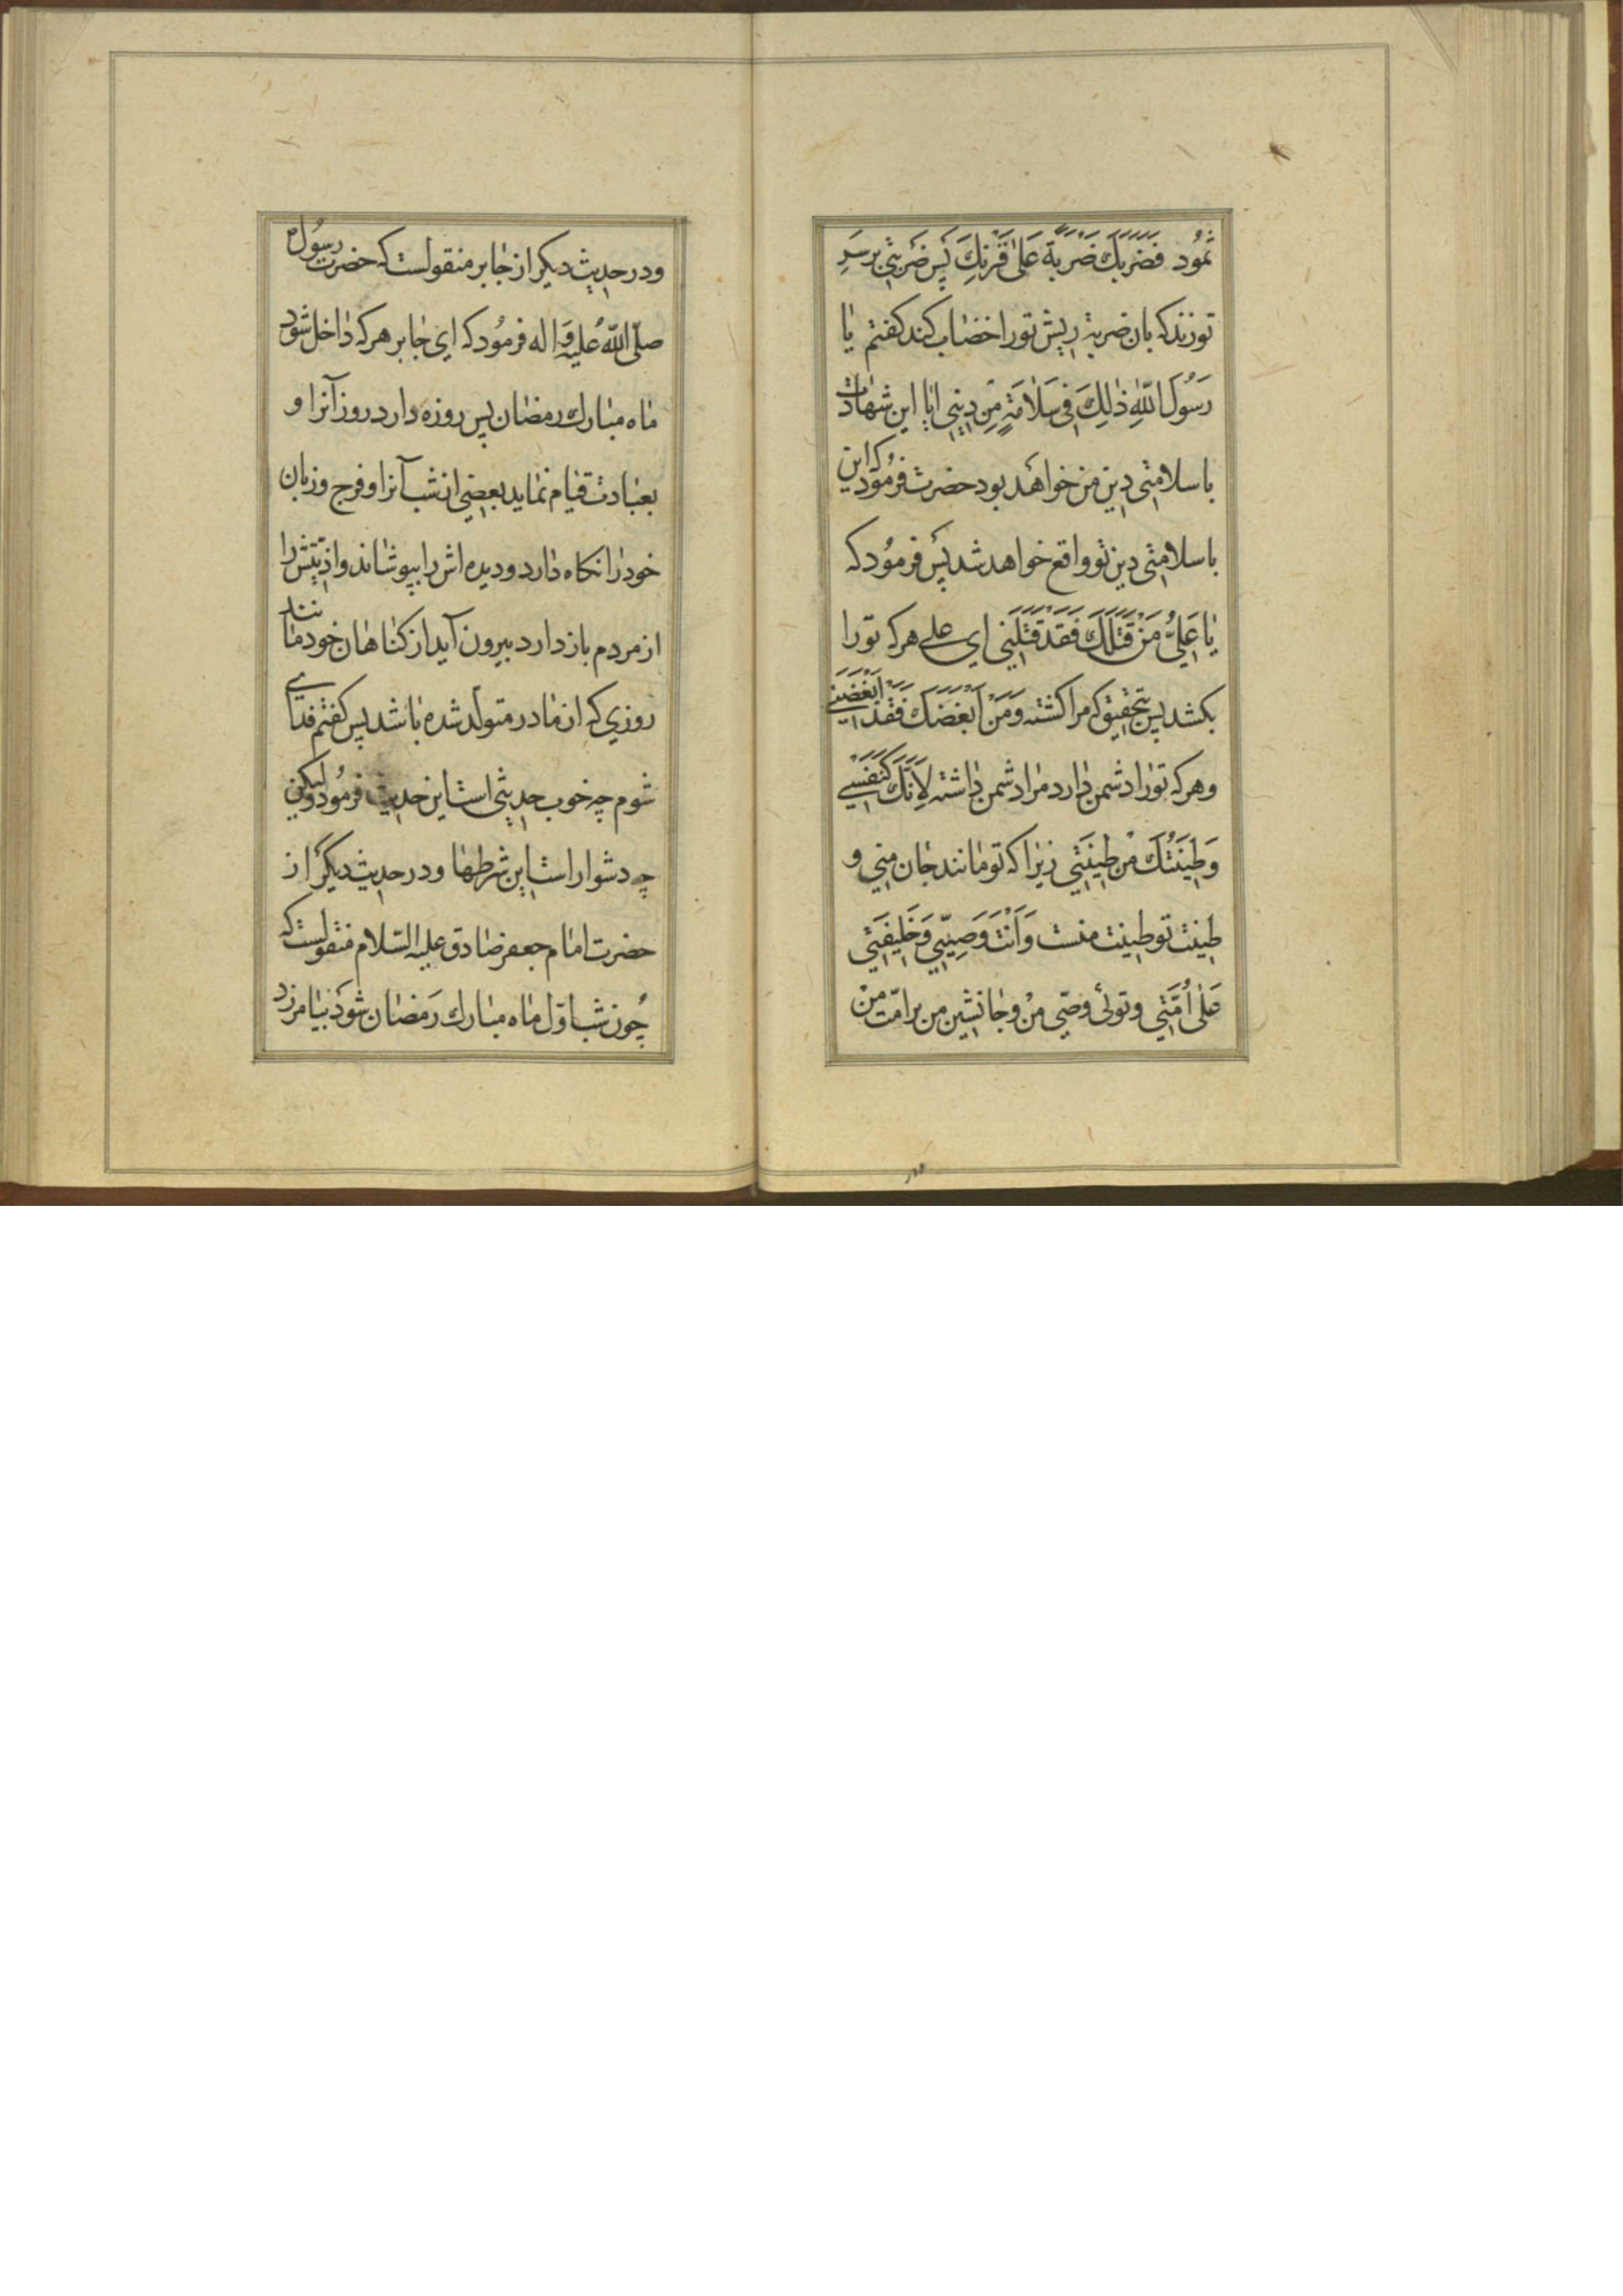 ثَمُود فَضَرَبَكَ ضَرْبَةً عَلٰی قَرْنِكَ پَس ضَربتی بر سَرِ
تو زند که بان ضربة ریش تو را خضاب کند کفتم یا
رَسُولَ اللّٰهِ ذٰلِكَ فی سَلٰامَةٍ مِن دینی ایا این شهادت
با سلامتی دین من خواهد بود حضرت فرمُود که این
با سلامتی دین تو واقع خواهد شد پس فرمُود که
یا عَلِیُّ مَنْ قَتَلَكَ فَقَدْ قَتَلَنی ای علی هر که تو را
بکشد پس بتحقیق که مرا کشته وَمَنْ اَبْغَضَكَ فَقَدْ اَبْغَضَنی
و هر که تو را دشمن دارد مرا دشمن داشته لِاَنَّكَ کَنَفْسی
وَطینَتُكَ مِنْ طینَتی زیرا که تو مانند جان منی و
طینت تو طینت منست وَاَنْتَ وَصِیّی وَخَلیفَتی
عَلٰی اُمَّتی و توئی وصّی من و جانشین من بر امّت من
و در حدیث دیکر از جابر منقولست که حضرت رسُول
صلّی اللّه عَلیه وَاله فرمُود که ای جابر هر که داخل شود
ماه مبارك رمضان پس روزه دارد روز آنرا و
بعبادت قیام نماید بعضی از شب آنرا و فرج و زبان
خود را نکاه دارد و دیده اش را بپوشاند و اذیّتش را
از مردم باز دارد بیرون آید از کناهان خود مانند
روزی که از مادر متولّد شده باشد پس کفتم فدای
شوم چه خوب حدیثی است این حدیث فرمُود ولیکن
چه دشوار است این شرطها و در حدیث دیکر از
حضرت امام جعفر صادق علیه السّلام منقولست که
چُون شب اوّل ماه مبارك رَمضان شود بیامرزد